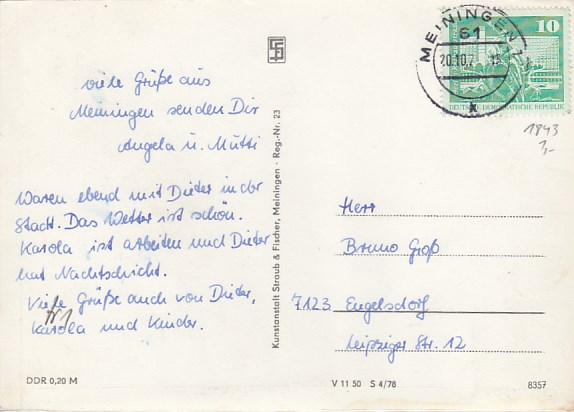 viele Grüße aus
Meiningen senden Dir
Angela u. Mutti
Waren ebend mit Dieter in der
Stadt. Das Wetter ist schön.
Karola ist arbeiten und Dieter
hat Nachtschicht.
Viele Grüße auch von Dieter,
Karola und Kinder.
DDR 0,20 M
Kunstanstalt Straub & Fischer, Meiningen · Reg.-Nr. 23
MEININGEN
61
10
DEUTSCHE DEMOKRATISCHE REPUBLIK
x
1843
1,-
Herr
Bruno Groß
7123 Engelsdorf
Leipziger Str. 12
V 11 50 S 4/78
8357